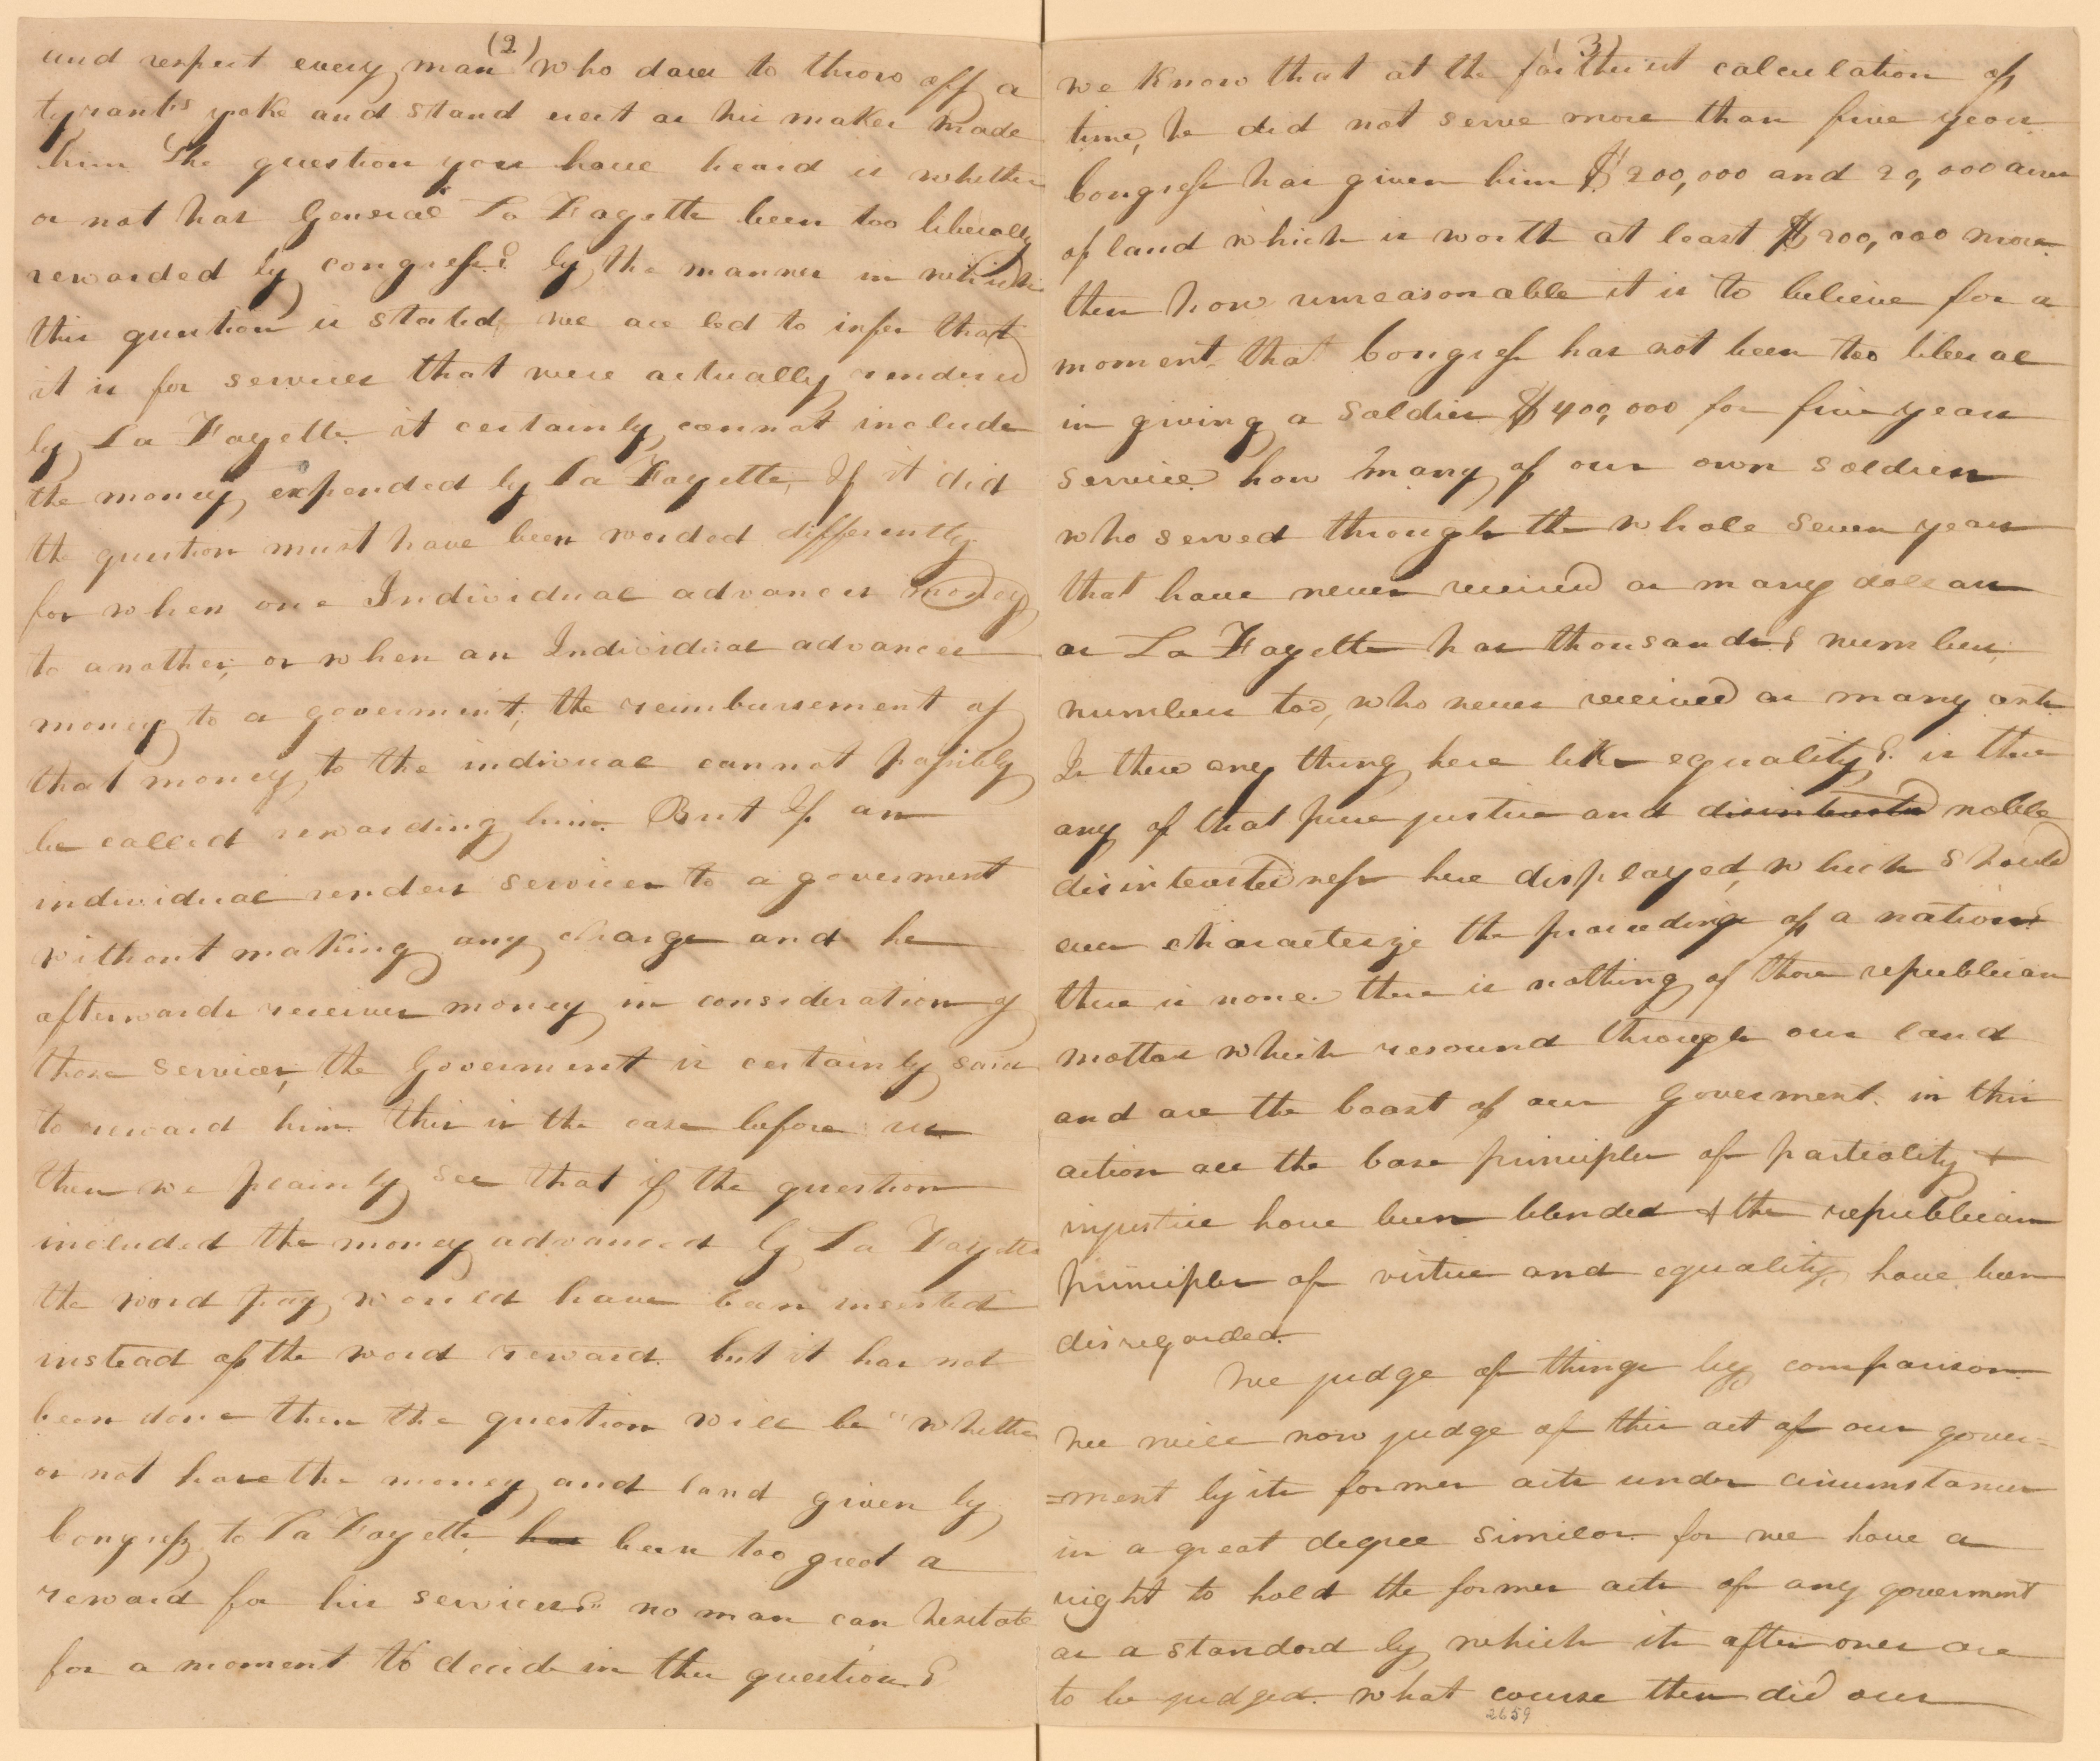 (2)
and respect every man who dares to throw off a
tyrants yoke and stand erect as his maker made
him The question you have heard is whether
or not has General La Fayette been too liberally
rewarded by congress? by the manner in which
this question is stated, we are led to infer that
it is for services that were actually rendered
by La Fayette it certainly cannot include
the money expended by La Fayette, If it did
the question must have been worded differently
for when one Individual advances money
to another, or when an Individual advances
money to a goverment, the reimbursement of
that money to the indivual cannot possibly
be called rewarding him. But If an
individual renders services to a goverment
without making any charge and he
afterwards receives money in consideration of
those services, the Goverment is certainly said
to reward him. this is the case before us
then we plainly see that if the question
included the money advanced by La Fayette
the word pay would have been inserted
instead of the word reward. but it has not
been done then the question will be "whether
or not have the money and land given by
Congress to La Fayette has been too great a
reward for his services?" no man can hesitate
for a moment to decide in this question?
(3)
we know that at the farthest calculation of
time, he did not serve more than five years
Congress has given him $200,000 and 20,000 acres
of land which is worth at least $200,000 more
then how unreasonable it is to believe for a
moment that Congress has not been too liberal
in giving a soldier $400,000 for five years
service how many of our own soldiers
who served through the whole seven years
that have never received as many dollars
as La Fayette has thousands? numbers,
numbers too, who never received as many cents
Is there any thing here like equality? is there
any of that pure justice and disinterested noble
disinterestedness here displayed, which should
ever characterize the proceedings of a nation?
there is none. there is nothing of those republican
mottos which resound through our land
and are the boast of our Goverment. in this
action all the base principles of partiality &
injustice have been blended & the republican
principles of virtue and equality, have been
disregarded.
We judge of things by comparison.
We will now judge of this act of our gover=
=ment by its former acts under circumstances
in a great degree similar. for we have a
right to hold the former acts of any goverment
as a standard by which its after ones are
to be judged. what course then did our
2659